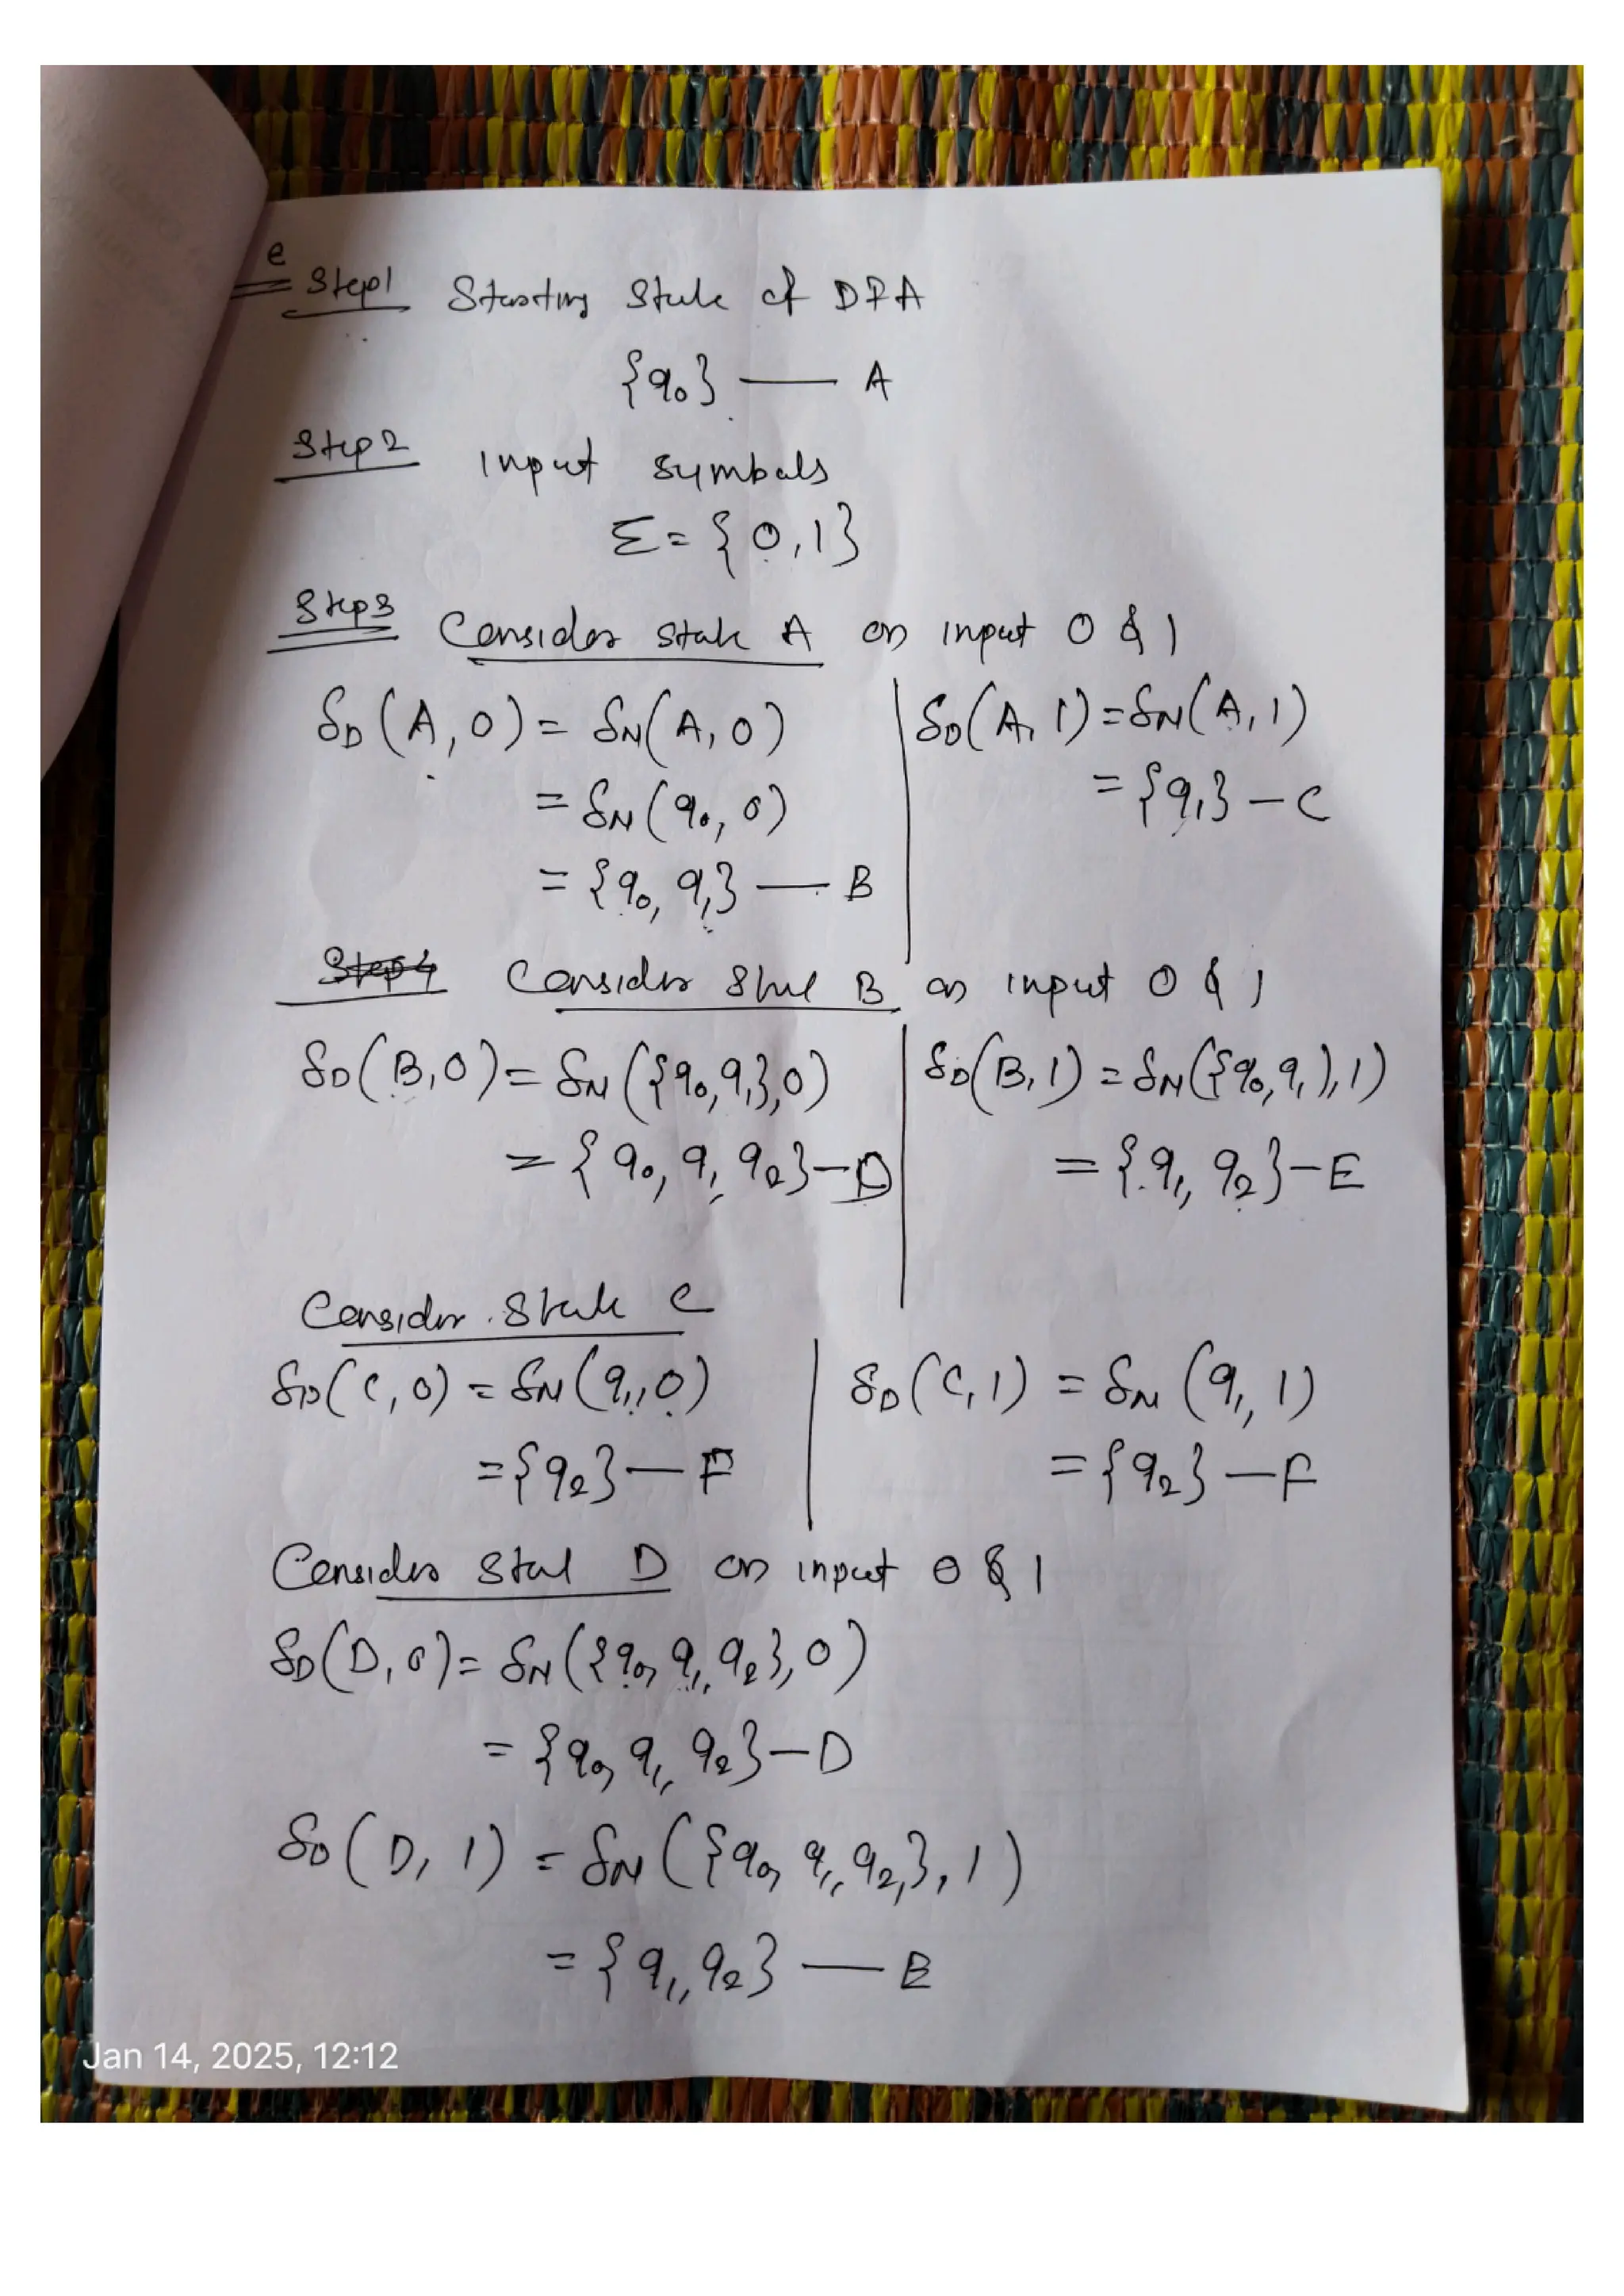 e
Step1 Starting State of DFA
{q₀} — A
Step2 Input symbols
Σ = {0,1}
Step3 Consider state A on input 0 & 1
δD(A,0) = δN(A,0) | δD(A,1) = δN(A,1)
= δN(q₀,0) | = {q₁} – C
= {q₀, q₁} — B
Step4 Consider State B on input 0 & 1
δD(B,0) = δN({q₀,q₁},0) | δD(B,1) = δN({q₀,q₁},1)
= {q₀, q₁, q₂} – D | = {q₁, q₂} – E
Consider State C
δD(C,0) = δN(q₁,0) | δD(C,1) = δN(q₁,1)
= {q₂} — F | = {q₂} — F
Consider State D on input 0 & 1
δD(D,0) = δN({q₀, q₁, q₂},0)
= {q₀, q₁, q₂} – D
δD(D,1) = δN({q₀, q₁, q₂,},1)
= {q₁, q₂} — E
Jan 14, 2025, 12:12